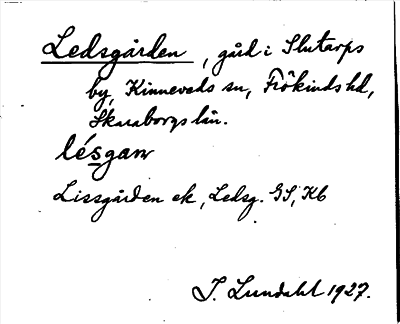 Ledsgården, gård i Slutarps
by, Kinneveds sn, Frökinds hd,
Skaraborgs län.
lésgaɴ
Lissgården ek, Ledsg. GS, Kb
J. Lundahl 1927.